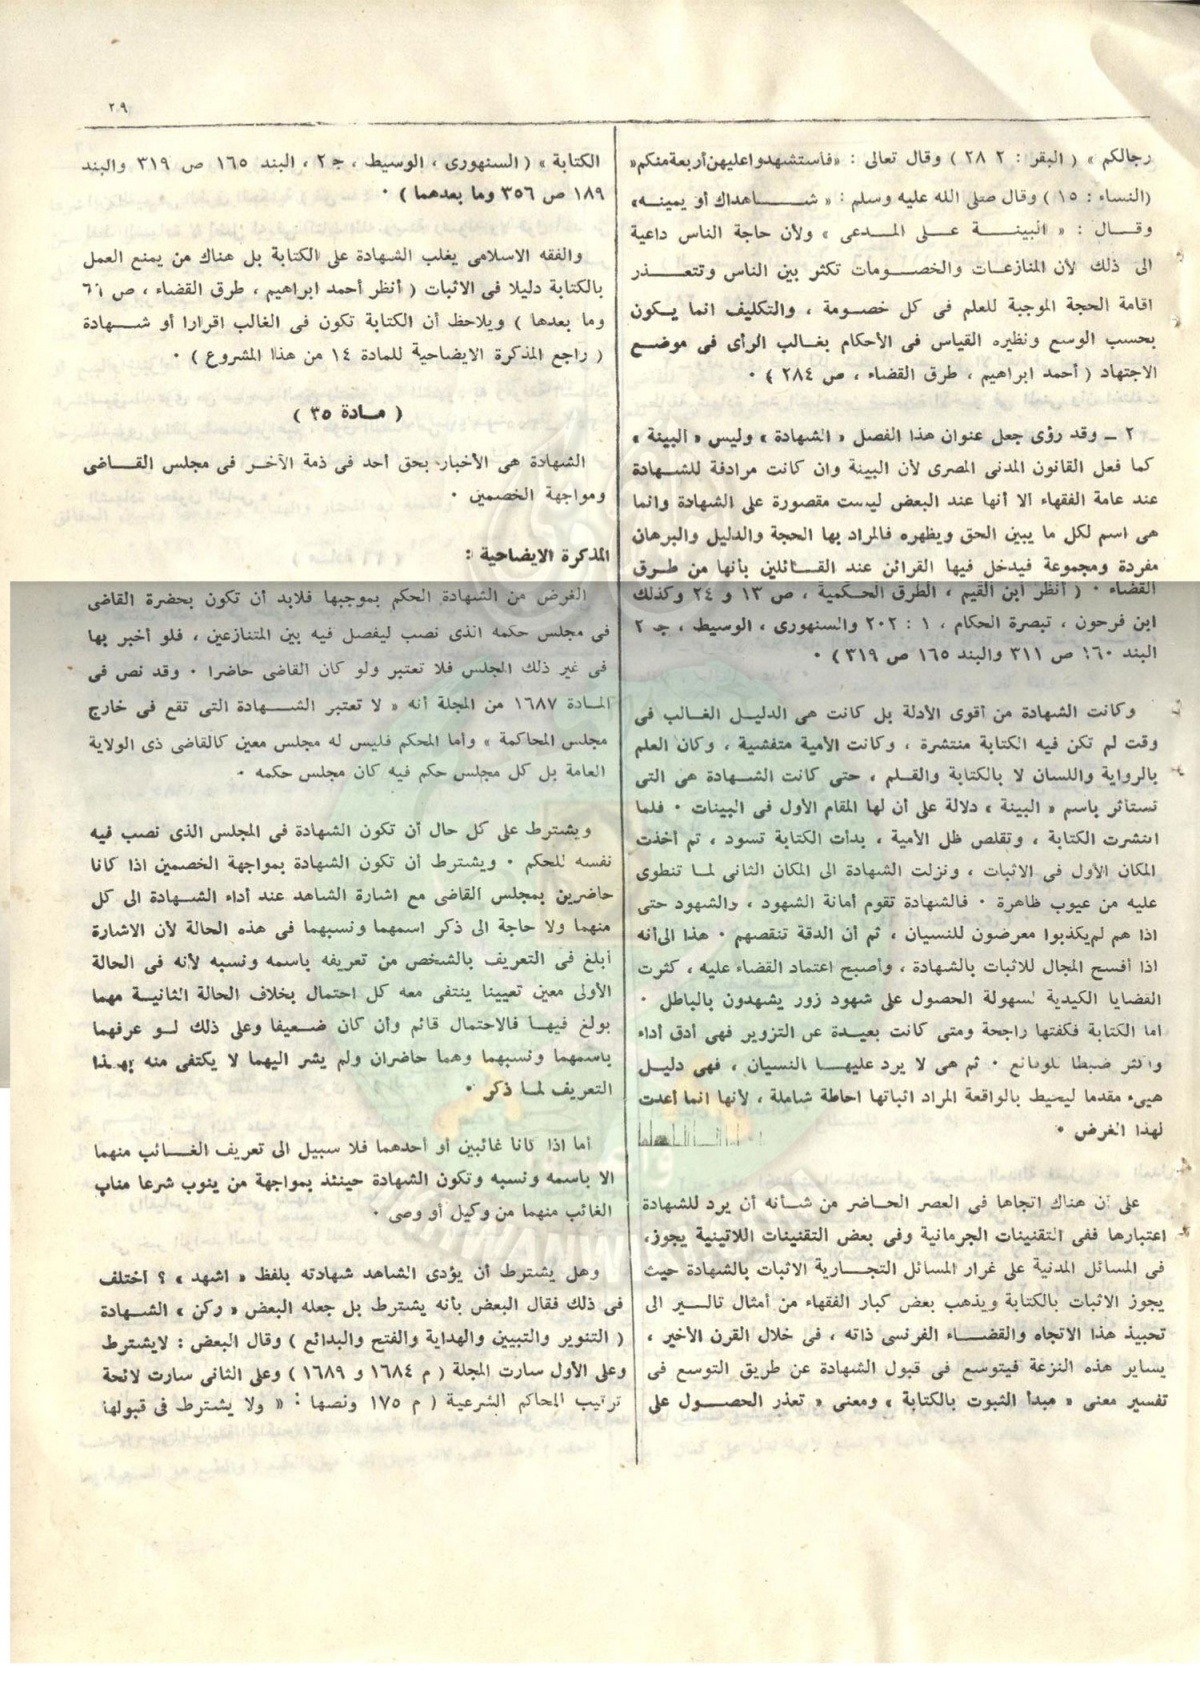 ٢٩
رجالكم » ( البقر : ٢٨٢ ) وقال تعالى : «فاستشهدوا عليهن أربعة منكم»
(النساء : ١٥ ) وقال صلى الله عليه وسلم : « شاهداك أو يمينه»
وقال : « البينة على المدعى » ولأن حاجة الناس داعية
الى ذلك لأن المنازعات والخصومات تكثر بين الناس وتتعذر
اقامة الحجة الموجبة للعلم فى كل خصومة ، والتكليف انما يكون
بحسب الوسع ونظيره القياس فى الأحكام بغالب الرأى فى موضع
الاجتهاد ( أحمد ابراهيم ، طرق القضاء ، ص ٢٨٤ ) ٠
٢ ـ وقد رؤى جعل عنوان هذا الفصل « الشهادة » وليس « البينة »
كما فعل القانون المدنى المصرى لأن البينة وان كانت مرادفة للشهادة
عند عامة الفقهاء الا أنها عند البعض ليست مقصورة على الشهادة وانما
هى اسم لكل ما يبين الحق ويظهره فالمراد بها الحجة والدليل والبرهان
مفردة ومجموعة فيدخل فيها القرائن عند القائلين بأنها من طرق
القضاء ٠ ( أنظر ابن القيم ، الطرق الحكمية ، ص ١٣ و ٢٤ وكذلك
ابن فرحون ، تبصرة الحكام ، ١ : ٢٠٢ والسنهورى ، الوسيط ، جـ ٢
البند ١٦٠ ص ٣١١ والبند ١٦٥ ص ٣١٩ ) ٠
وكانت الشهادة من أقوى الأدلة بل كانت هى الدليل الغالب فى
وقت لم تكن فيه الكتابة منتشرة ، وكانت الأمية متفشية ، وكان العلم
بالرواية واللسان لا بالكتابة والقلم ، حتى كانت الشهادة هى التى
تستأثر باسم « البينة » دلالة على أن لها المقام الأول فى البينات ٠ فلما
انتشرت الكتابة ، وتقلص ظل الأمية ، بدأت الكتابة تسود ، ثم أخذت
المكان الأول فى الاثبات ، ونزلت الشهادة الى المكان الثانى لما تنطوى
عليه من عيوب ظاهرة ٠ فالشهادة تقوم أمانة الشهود ، والشهود حتى
اذا هم لم يكذبوا معرضون للنسيان ، ثم أن الدقة تنقصهم ٠ هذا الى أنه
اذا أفسح المجال للاثبات بالشهادة ، وأصبح اعتماد القضاء عليه ، كثرت
القضايا الكيدية لسهولة الحصول على شهود زور يشهدون بالباطل ٠
اما الكتابة فكفتها راجحة ومتى كانت بعيدة عن التزوير فهى أدق أداء
واكثر ضبطا للوقائع ٠ ثم هى لا يرد عليها النسيان ، فهى دليل
هيىء مقدما ليحيط بالواقعة المراد اثباتها احاطة شاملة ، لأنها انما أعدت
لهذا الغرض ٠
على أن هناك اتجاها فى العصر الحاضر من شأنه أن يرد للشهادة
اعتبارها ففى التقنينات الجرمانية وفى بعض التقنينات اللاتينية يجوز،
فى المسائل المدنية على غرار المسائل التجارية الاثبات بالشهادة حيث
يجوز الاثبات بالكتابة ويذهب بعض كبار الفقهاء من أمثال تالسير الى
تحبيذ هذا الاتجاه والقضاء الفرنسى ذاته ، فى خلال القرن الأخير ،
يساير هذه النزعة فيتوسع فى قبول الشهادة عن طريق التوسع فى
تفسير معنى « مبدأ الثبوت بالكتابة » ومعنى « تعذر الحصول على
الكتابة » ( السنهورى ، الوسيط ، جـ ٢ ، البند ١٦٥ ص ٣١٩ والبند
١٨٩ ص ٣٥٦ وما بعدهما ) ٠
والفقه الاسلامى يغلب الشهادة على الكتابة بل هناك من يمنع العمل
بالكتابة دليلا فى الاثبات ( أنظر أحمد ابراهيم ، طرق القضاء ، ص
وما بعدها ) ويلاحظ أن الكتابة تكون فى الغالب اقرارا أو شهادة
( راجع المذكرة الايضاحية للمادة ١٤ من هذا المشروع ) ٠
( مادة ٣٥ )
الشهادة هى الأخبار بحق أحد فى ذمة الآخر فى مجلس القاضى
ومواجهة الخصمين ٠
المذكرة الايضاحية :
الغرض من الشهادة الحكم بموجبها فلابد أن تكون بحضرة القاضى
فى مجلس حكمه الذى نصب ليفصل فيه بين المتنازعين ، فلو أخبر بها
فى غير ذلك المجلس فلا تعتبر ولو كان القاضى حاضرا ٠ وقد نص فى
المادة ١٦٨٧ من المجلة أنه « لا تعتبر الشهادة التى تقع فى خارج
مجلس المحاكمة » وأما المحكم فليس له مجلس معين كالقاضى ذى الولاية
العامة بل كل مجلس حكم فيه كان مجلس حكمه ٠
ويشترط على كل حال أن تكون الشهادة فى المجلس الذى نصب فيه
نفسه للحكم ٠ ويشترط أن تكون الشهادة بمواجهة الخصمين اذا كانا
حاضرين بمجلس القاضى مع اشارة الشاهد عند أداء الشهادة الى كل
منهما ولا حاجة الى ذكر اسمهما ونسبهما فى هذه الحالة لأن الاشارة
أبلغ فى التعريف بالشخص من تعريفه باسمه ونسبه لأنه فى الحالة
الأولى معين تعيينا ينتفى معه كل احتمال بخلاف الحالة الثانية مهما
بولغ فيها فالاحتمال قائم وأن كان ضعيفا وعلى ذلك لو عرفهما
باسمهما ونسبهما وهما حاضران ولم يشر اليهما لا يكتفى منه بهذا
التعريف لما ذكر ٠
أما اذا كانا غائبين أو أحدهما فلا سبيل الى تعريف الغائب منهما
الا باسمه ونسبه وتكون الشهادة حينئذ بمواجهة من ينوب شرعا مناب
الغائب منهما من وكيل أو وصى ٠
وهل يشترط أن يؤدى الشاهد شهادته بلفظ « اشهد » ؟ أختلف
فى ذلك فقال البعض بأنه يشترط بل جعله البعض « ركن » الشهادة
( التنوير والتبيين والهداية والفتح والبدائع ) وقال البعض : لايشترط
وعلى الأول سارت المجلة ( م ١٦٨٤ و ١٦٨٩ ) وعلى الثانى سارت لائحة
ترتيب المحاكم الشرعية ( م ١٧٥ ونصها : « ولا يشترط فى قبولها